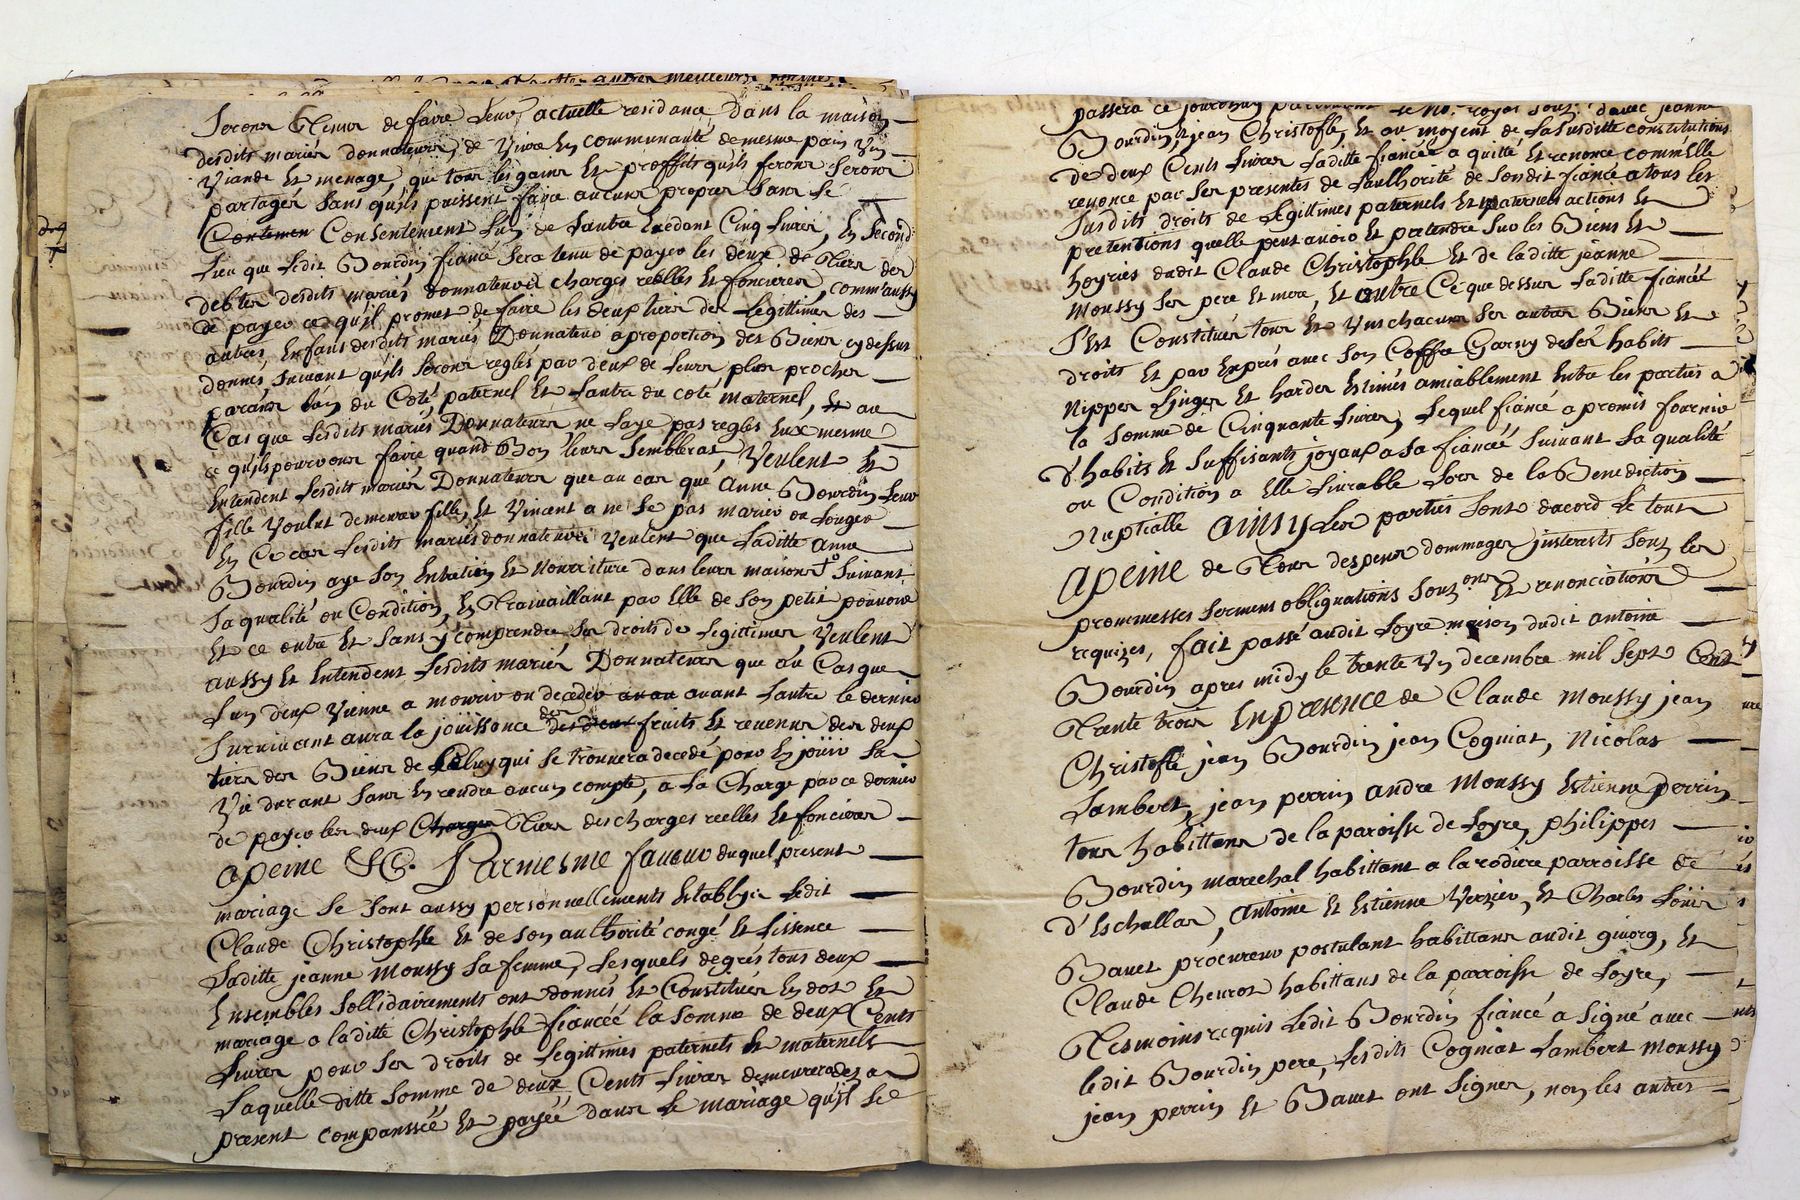 seront tenus de faire leur actuelle residance dans la maison
desdits mariés donnateurs, de vivre en communauté de mesme pain vin
viande et menage, que tous les gains et proffits quils feront seront
partagés sans quils puissent faire aucuns propres sans le
Consentement Consentement l'un de l'autre Exedant Cinq livres, En second
lieu que ledit Bourdin fiancé sera tenu de payer les deux de tiers des
debtes desdits mariés donnateurs charges reelles et foncieres, comm'aussy
de payer ce qu'il promet de faire les deux tiers des Legittimes des
autres Enfans desdits mariés Donnateurs a proportion des Biens cy dessus
donnés, suivant quils seront reglés par deux de leurs plus proches
parans l'un du Coté paternel et l'autre du coté maternel, et au
Cas que lesdits mariés Donnateurs ne l'aye pas reglés Eux mesme
ce quils pourront faire quand Bon leurs semblerat, Veulent et
Entendent lesdits mariés Donnateurs que au cas que Anne Bourdin leur
fille voulut demeurer fille, et vincent a ne se pas marier ou louger
En ce cas lesdits mariés donnateurs veulent que laditte anne
Bourdin aye son Entretien et nourriture dans leurs maisons suivant
sa qualité ou Condition, En travaillant par Elle de son petit pouvoir
Et ce outre et sans y comprendre ses droits de Legittimes, Veulent
aussy et Entendent lesdits mariés Donnateurs que au Cas que
l'un d'eux vienne a mourir ou deceder avant l'autre le dernier
survivant aura la jouissance des des deux fruits et revenus des deux
tiers des Biens de Celuy qui se trouvera decedé pour En joüir sa
vie durant sans En rendre aucun compte, a la Charge par ce dernier
de payer les deux Charges tiers des charges reelles et foncieres
apeine &C. Parmesme faveur duquel present
mariage se sont aussy personnellements Establys ledit
Claude Christophle et de son authorité congé et lissence
laditte jeanne Moussy sa femme, Lesquels de grés tous deux
Ensembles sollidairements ont donnés et Constitués En dot et
mariage a laditte Christophle fiancéé la somme de deux Cents
livres pour ses droits de Legittimes paternels et maternels
Laquelle ditte somme de deux Cents livres demeurera a
present companssée et payéé dans le mariage qu'il se
passera ce jourdhuy pardevant le No.re royal souz.é d'avec jeanne
Bourdin et jean Christofle, Et au moyent de la susditte constitutions
de deux Cents livres laditte fiancéé a quitté et renoncé comm'elle
renonce par ses presentes de l'aulhorité de sondit fiancé a tous les
susdits droits de Legittimes paternels et maternels actions et
pretentions quelle peut avoir et pretendre sur les Biens et
hoyries dudit Claude Christophle et de laditte jeanne
Moussy ses pere et mere, Et outre Ce que dessus laditte fiancéé
s'est Constituéé tous et uns chacuns ses autres Biens et
droits Et par Exprés avec son Coffre Garny de ses habits
Nippes Linges et hardes Estimés amiablement Entre les parties a
la somme de Cinquante livres, Lequel fiancé a promis fournir
d'habits et suffisants joyaux a sa fiancéé suivant sa qualité
ou Condition a Elle livrable lors de la Benediction
Nuptialle ainsy les parties sont dacord le tout
apeine de tous despens dommages jnterests souz les
prommesses sermens obligations souz.ons et renonciations
requizes, fait passé audit Loyre maison dudit antoine
Bourdin apres midy le trente un decembre mil sept Cent
Trente trois Enpresence de Claude Moussy jean
Christofle jean Bourdin jean Cogniat, Nicolas
Lambert, jean perrin andre Moussy Estienne perrin
tous habittans de la paroisse de Loyre, philippes
Bourdin marechal habittant a la rodiere parroisse de
d'Eschallas, Antoine et Estienne Verzier, et Charles
Bavet procureur postulant habittans audit givorg, Et
Claude Chevrot habittans de la parroisse de Loyre,
Tesmoins requis ledit Bourdin fiancé a signé avec
ledit Bourdin pere, Lesdits Cogniat Lambert Moussy
jean perrin et Bavet ont signer, non les autres